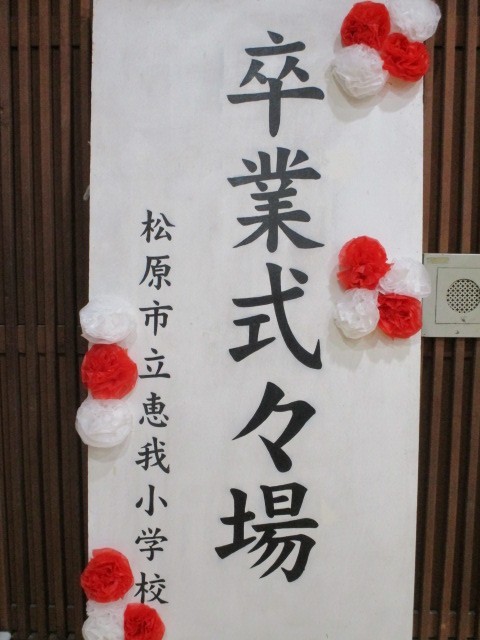 卒業式々場
松原市立恵我小学校